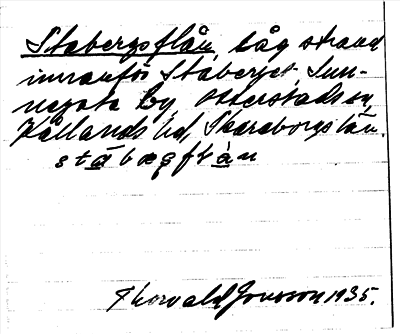 Stabergsflån, låg strand
innanför Staberget, Sun-
negata by, Otterstads sn,
Kållands hd, Skaraborgs län.
Thorvald Jonsson 1935.